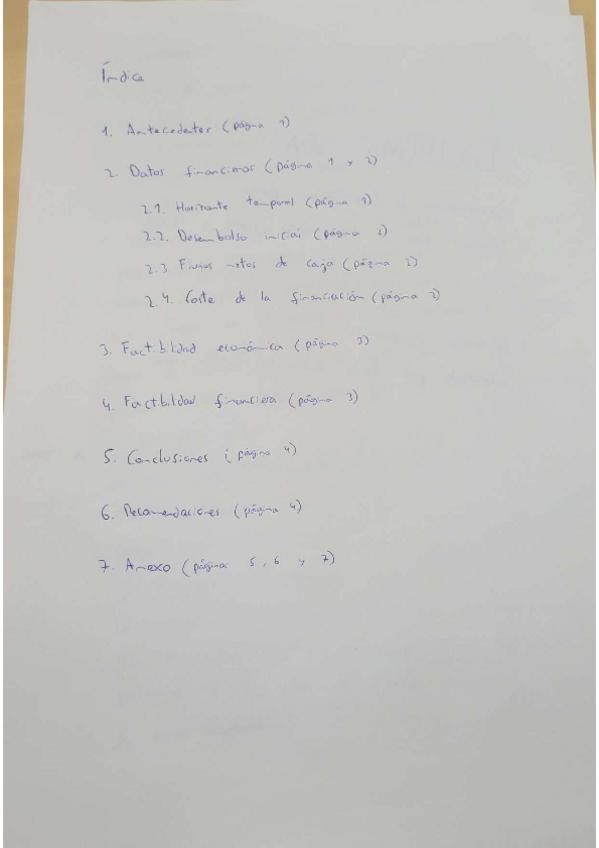 Índice
1. Antecedentes (página 1)
2. Datos financieros (página 1 y 2)
2.1. Horizonte temporal (página 1)
2.2. Desembolso inicial (página 2)
2.3 Flujos netos de caja (página 2)
2.4. Coste de la financiación (página 2)
3. Factibilidad económica (página 3)
4. Factibilidad financiera (página 3)
5. Conclusiones (página 4)
6. Recomendaciones (página 4)
7. Anexo (página 5, 6 y 7)